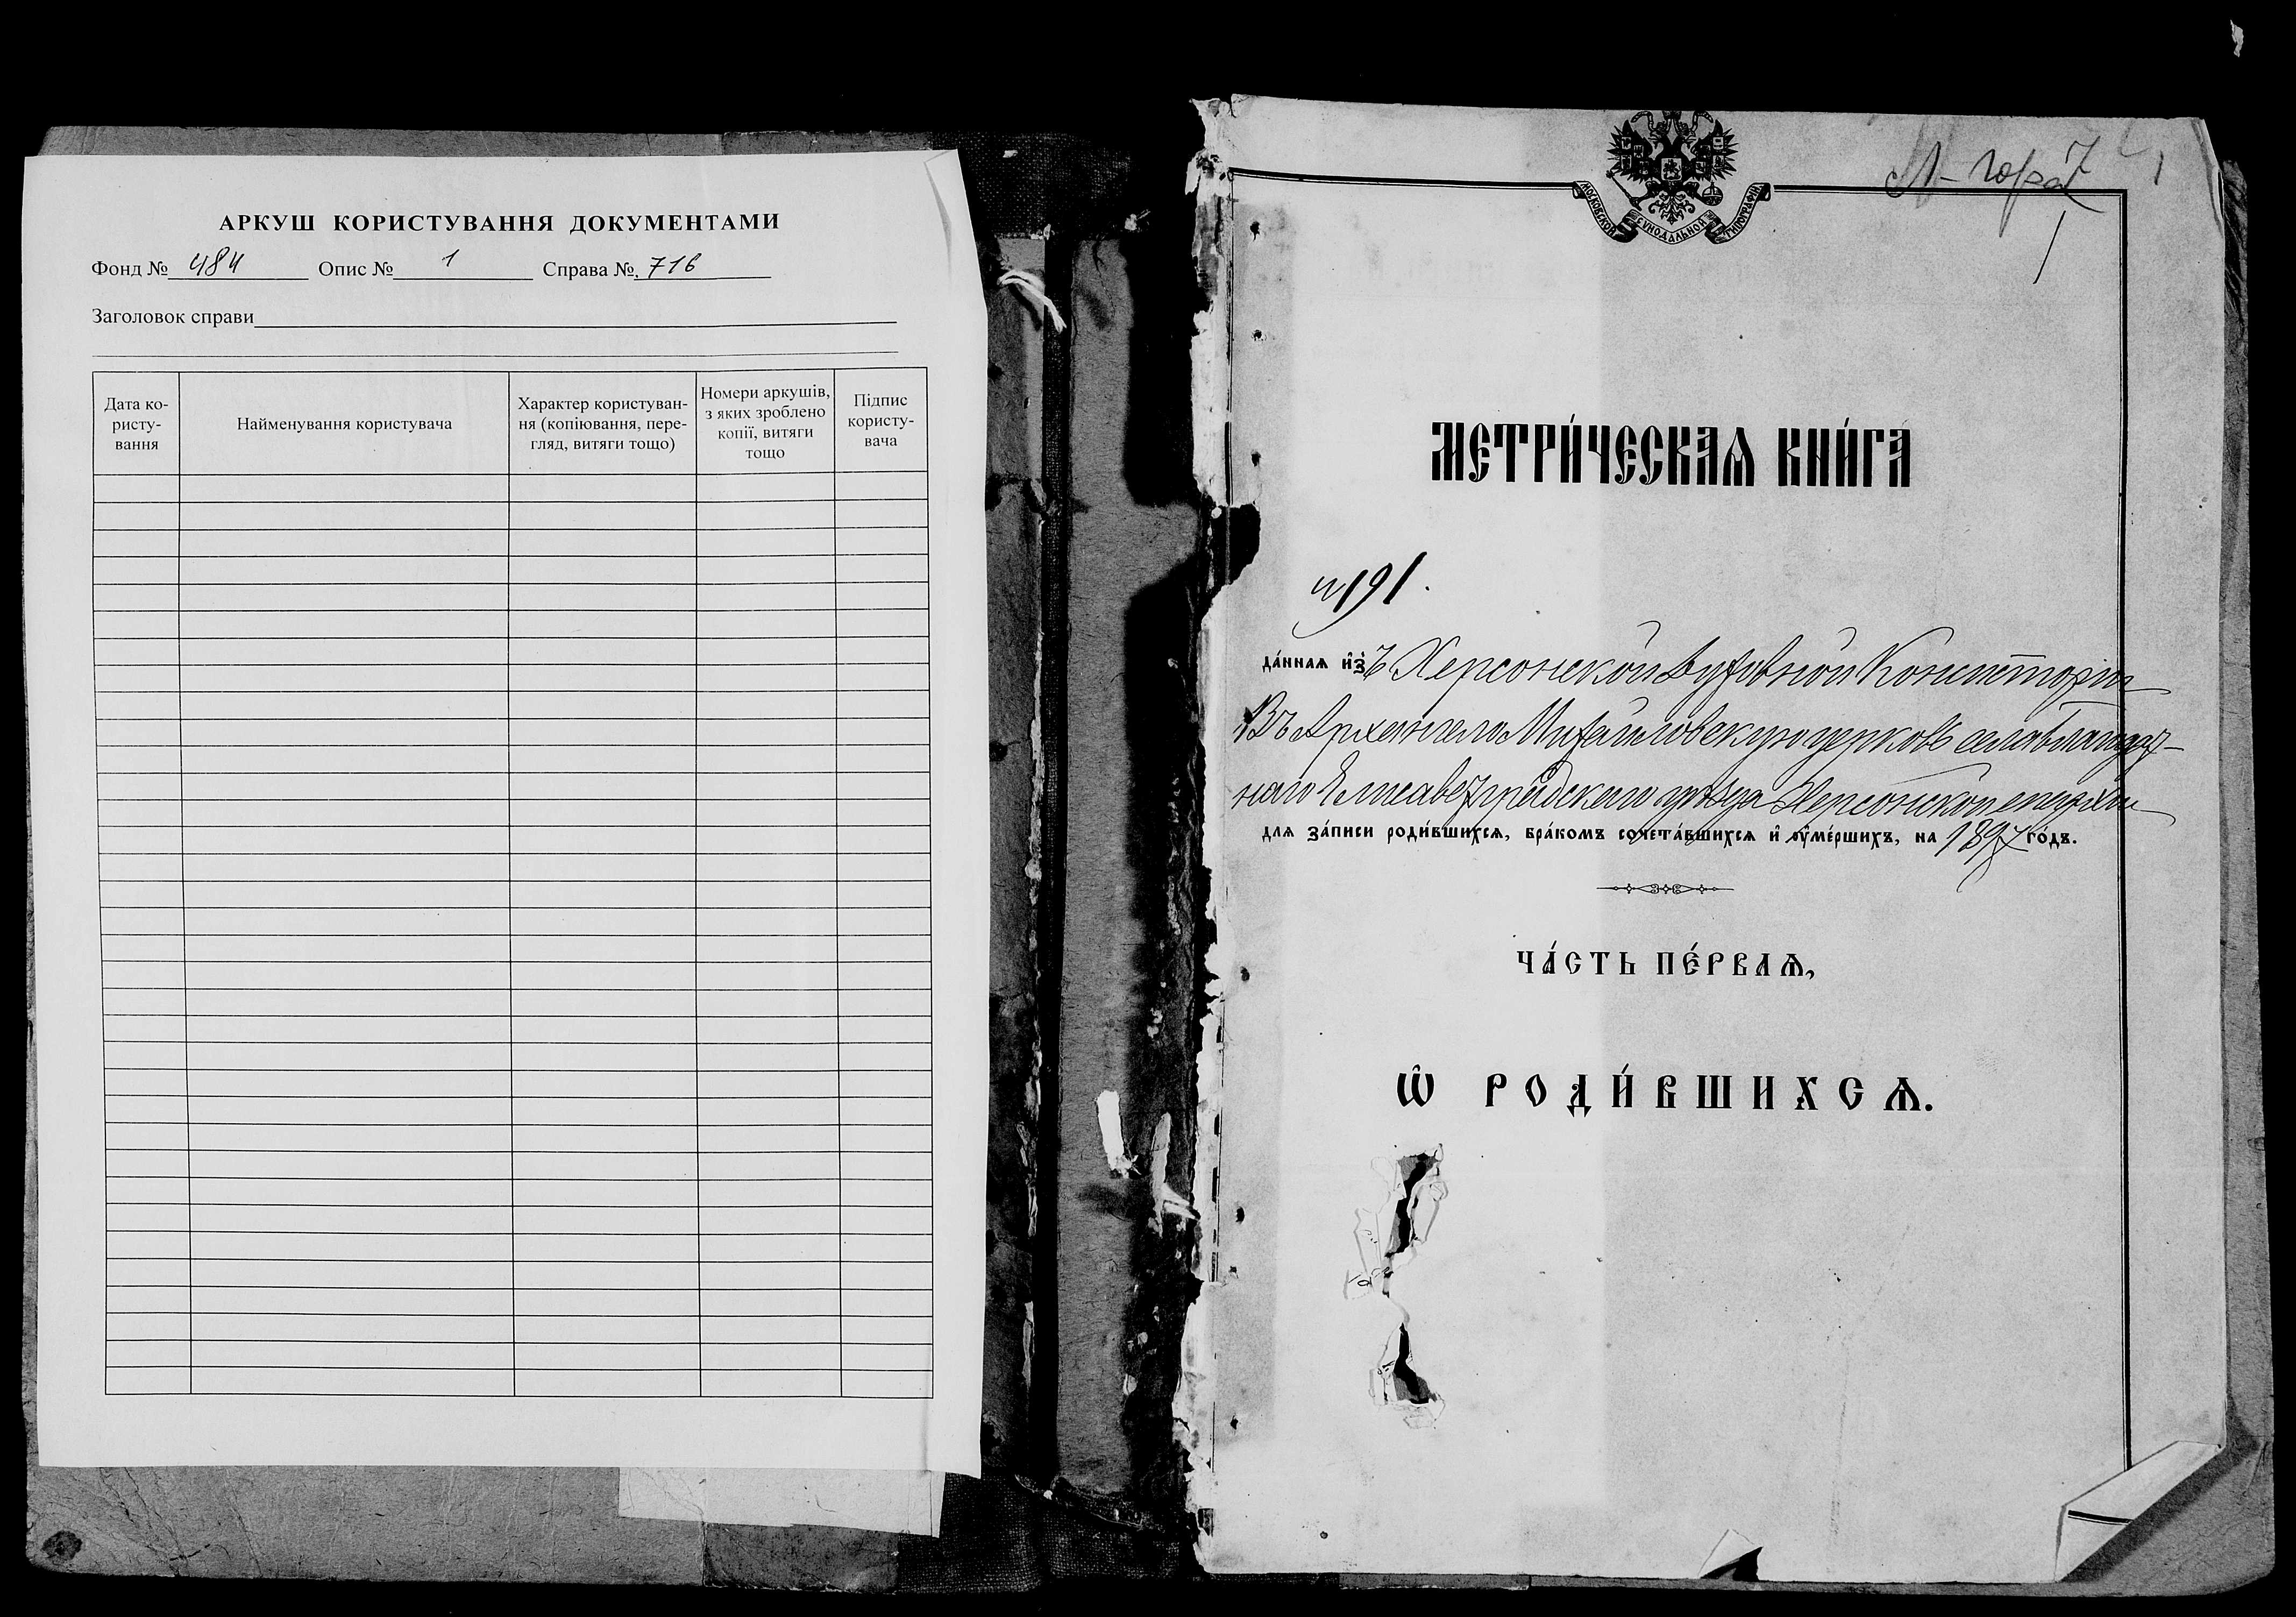 АРКУШ КОРИСТУВАННЯ ДОКУМЕНТАМИ
Фонд № 484 Опис № 1 Справа №. 716
Заголовок справи
Дата ко-
ристу-
вання
Найменування користувача
Характер користуван-
ня (копіювання, пере-
гляд, витяги тощо)
Номери аркушів,
з яких зроблено
копії, витяги
тощо
Підпис
користу-
вача
МОСКОВСКОЙ СѴНОДАЛЬНОЙ ТИПОГРАФІИ
1
МЕТРИ́ЧЕСКАѦ КНИ́ГА
№191.
да́ннаѧ и҆з̾ъ Херсонской Духовной Консисторіи
Въ Архангело Михайловскую церковь села
наго Елисаветградскаго уѣзда Херсонской епархіи
для за́писи роди́вшихсѧ, бра́комъ сочета́вшихсѧ и҆ ᲂу҆ме́ршихъ, на 1897 го́дъ.
ЧА́СТЬ ПЕ́РВАѦ,
Ѡ҆ РОДИ́ВШИХСѦ.